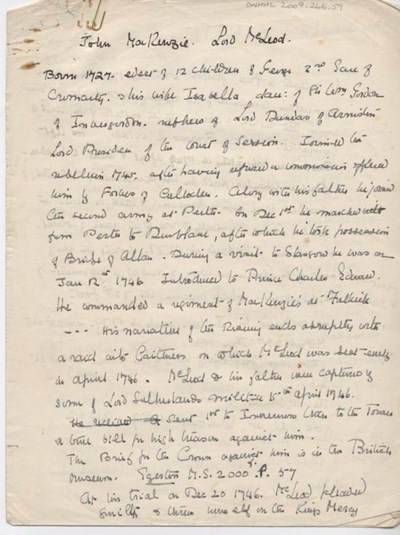 DNHHL 2009.266.57
John MacKenzie. Lord McLeod.
Born 1727. eldest of 12 children of George 3rd Earl of
Cromarty & his wife Isabella dau: of Sir Wm Gordon
of Invergordon. nephew of Lord Dundas of Arniston
Lord President of the Court of Session. Joined the
rebellion 1745. after having refused a commission offered
him by Forbes of Culloden. Along with his father he joined
the second army at Perth. On Dec 1st he marched
from Perth to Dunblane, after which he took possession
of Bridge of Allan. During a visit to Glasgow he was on
Jan 12th 1746 Introduced to Prince Charles Edward.
He commanded a regiment of MacKenzie's at Falkirk
--- His narrative of the Rising ends abruptly with
a raid into Caithness on which McLeod was sent
in April 1746. McLeod & his father were captured by
some of Lord Sutherlands militia 15th April 1746.
Sent 1st to Inverness then to the Tower
a true bill for high treason against him.
The Brief for the Crown against him is in the British
Museum. Egerton M.S. 2000 P. 57
At his trial on Dec 20 1746. McLeod pleaded
guilty & threw himself on the Kings Mercy